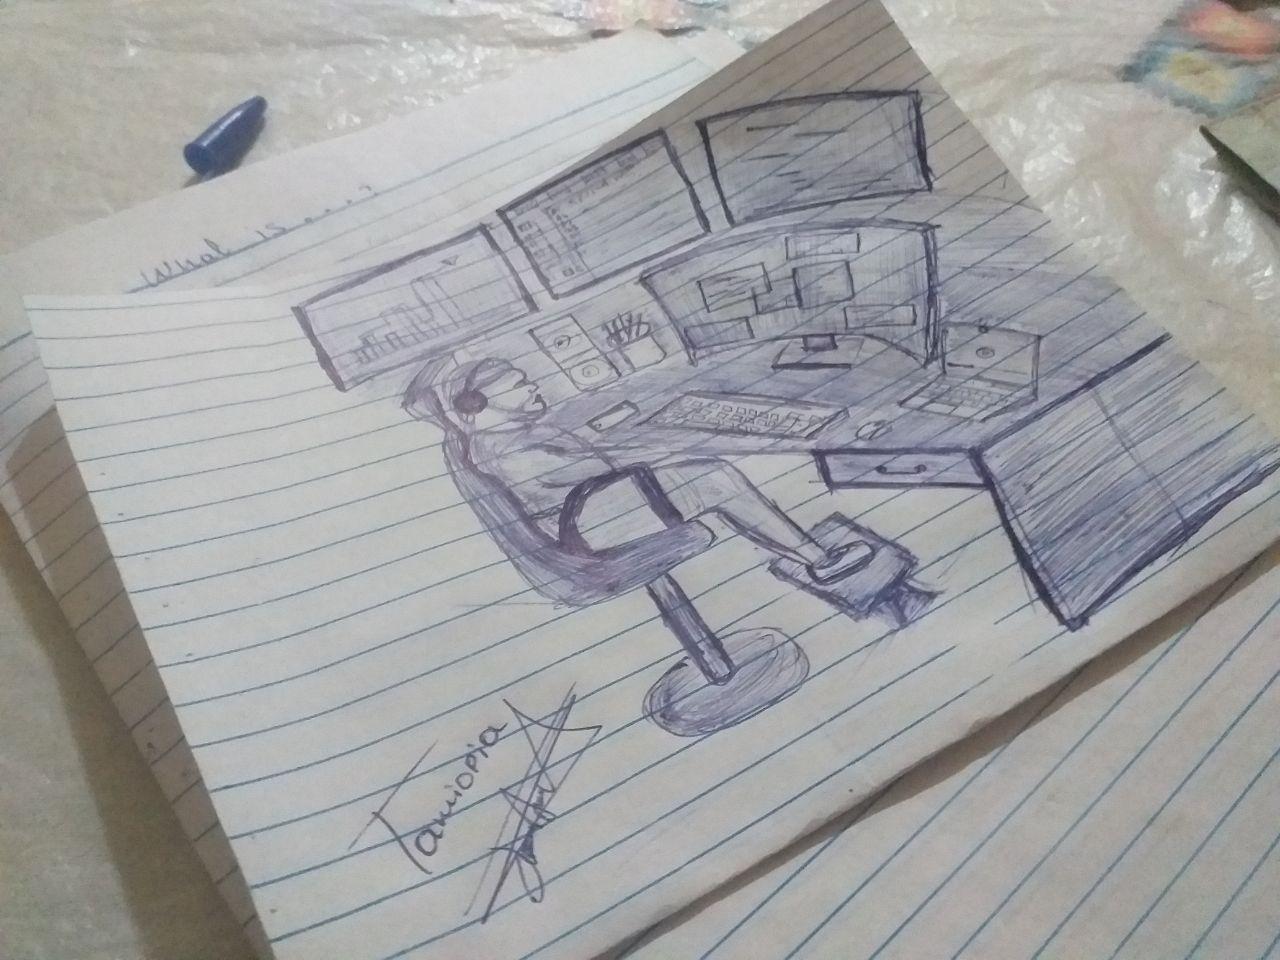 What is....?
Tamiopia